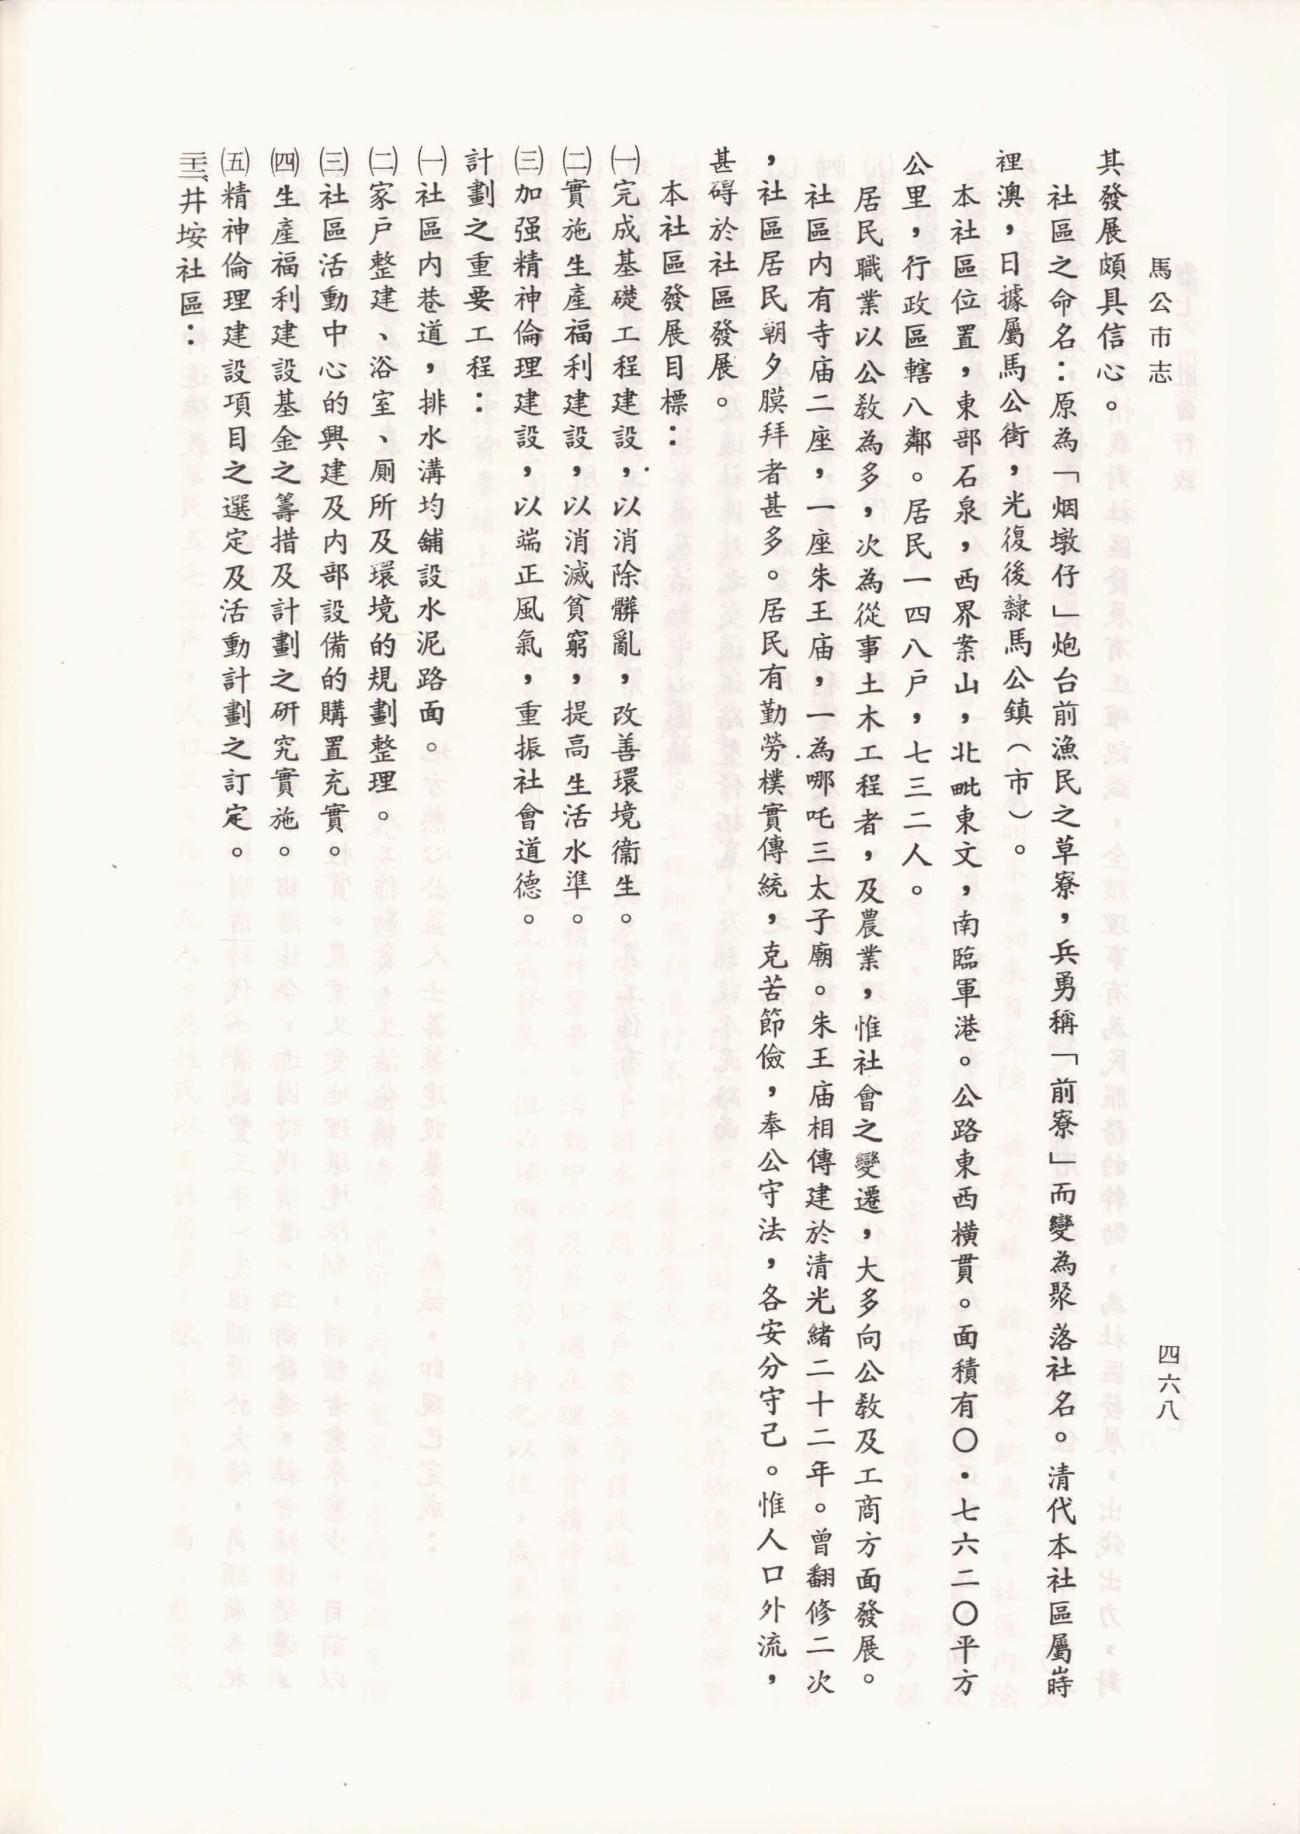 馬公市志
四六八
其發展頗具信心。
社區之命名：原為「烟墩仔」炮台前漁民之草寮，兵勇稱「前寮」而變為聚落社名。清代本社區屬嵵
裡澳，日據屬馬公街，光復後隸馬公鎮（市）。
本社區位置，東部石泉，西界案山，北毗東文，南臨軍港。公路東西橫貫。面積有〇・七六二〇平方
公里，行政區轄八鄰。居民一四八戶，七三二人。
居民職業以公教為多，次為從事土木工程者，及農業，惟社會之變遷，大多向公教及工商方面發展。
社區內有寺庙二座，一座朱王庙，一為哪吒三太子廟。朱王庙相傳建於清光緒二十二年。曾翻修二次
，社區居民朝夕膜拜者甚多。居民有勤勞樸實傳統，克苦節儉，奉公守法，各安分守己。惟人口外流，
甚碍於社區發展。
本社區發展目標：
㈠完成基礎工程建設，以消除髒亂，改善環境衞生。
㈡實施生產福利建設，以消滅貧窮，提高生活水準。
㈢加强精神倫理建設，以端正風氣，重振社會道德。
計劃之重要工程：
㈠社區內巷道，排水溝均舖設水泥路面。
㈡家戶整建、浴室、厠所及環境的規劃整理。
㈢社區活動中心的興建及內部設備的購置充實。
㈣生產福利建設基金之籌措及計劃之研究實施。
㈤精神倫理建設項目之選定及活動計劃之訂定。
井垵社區：